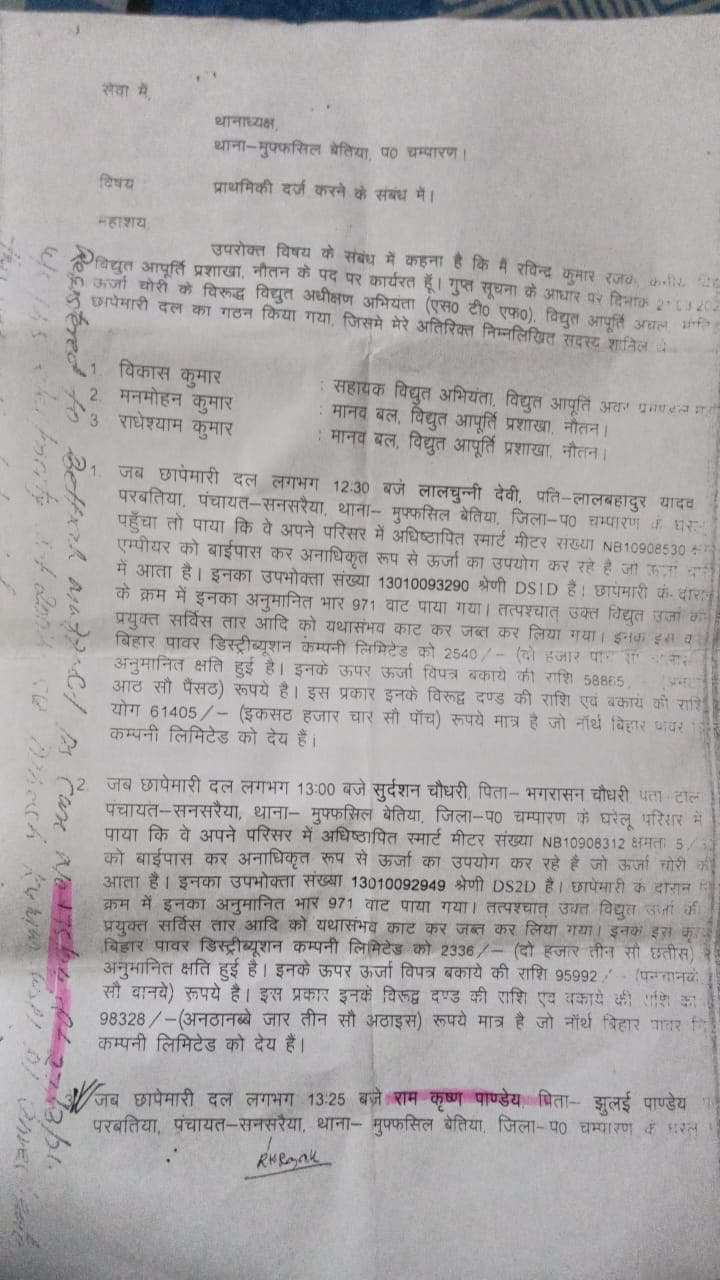 सेवा में,
थानाध्यक्ष,
थाना–मुफ्फसिल बेतिया, प0 चम्पारण।
विषय प्राथमिकी दर्ज करने के संबंध में।
महाशय,
उपरोक्त विषय के संबंध में कहना है कि मैं रविन्द्र कुमार रजक, कनीय
विद्युत आपूर्ति प्रशाखा, नौतन के पद पर कार्यरत हूँ। गुप्त सूचना के आधार पर दिनांक
ऊर्जा चोरी के विरूद्ध विद्युत अधीक्षण अभियंता (एस0 टी0 एफ0), विद्युत आपूर्ति अंचल,
छापेमारी दल का गठन किया गया, जिसमे मेरे अतिरिक्त निम्नलिखित सदस्य शामिल थे
1. विकास कुमार : सहायक विद्युत अभियंता, विद्युत आपूर्ति अवर प्रमण्डल
2. मनमोहन कुमार : मानव बल, विद्युत आपूर्ति प्रशाखा, नौतन।
3 राधेश्याम कुमार : मानव बल, विद्युत आपूर्ति प्रशाखा, नौतन।
1. जब छापेमारी दल लगभग 12:30 बजे लालचुन्नी देवी, पति–लालबहादुर यादव
परबतिया, पंचायत–सनसरैया, थाना– मुफ्फसिल बेतिया, जिला–प0 चम्पारण के घरेलू
पहुँचा तो पाया कि वे अपने परिसर में अधिष्ठापित स्मार्ट मीटर संख्या NB10908530
एम्पीयर को बाईपास कर अनाधिकृत रूप से ऊर्जा का उपयोग कर रहे है जो ऊर्जा
में आता है। इनका उपभोक्ता संख्या 13010093290 श्रेणी DS1D है। छापेमारी के दौरान
के क्रम में इनका अनुमानित भार 971 वाट पाया गया। तत्पश्चात् उक्त विद्युत उर्जा
प्रयुक्त सर्विस तार आदि को यथासंभव काट कर जब्त कर लिया गया। इनके इस
बिहार पावर डिस्ट्रीब्यूशन कंम्पनी लिमिटेड को 2540/– (दो हजार पाँच सौ
अनुमानित क्षति हुई है। इनके ऊपर ऊर्जा विपत्र बकाये की राशि 58865
आठ सौ पैंसठ) रूपये है। इस प्रकार इनके विरूद्ध दण्ड की राशि एवं बकाये की राशि
योग 61405/– (इकसठ हजार चार सौ पाँच) रूपये मात्र है जो नॉर्थ बिहार पावर
कम्पनी लिमिटेड को देय है।
2. जब छापेमारी दल लगभग 13:00 बजे सुर्दशन चौधरी, पिता– भगरासन चौधरी, पता टोला
पंचायत–सनसरैया, थाना– मुफ्फसिल बेतिया, जिला–प0 चम्पारण के घरेलू परिसर में
पाया कि वे अपने परिसर में अधिष्ठापित स्मार्ट मीटर संख्या NB10908312 क्षमता 5/
को बाईपास कर अनाधिकृत रूप से ऊर्जा का उपयोग कर रहे है जो ऊर्जा चोरी की
आता है। इनका उपभोक्ता संख्या 13010092949 श्रेणी DS2D है। छापेमारी के दौरान
क्रम में इनका अनुमानित भार 971 वाट पाया गया। तत्पश्चात् उक्त विद्युत उर्जा की
प्रयुक्त सर्विस तार आदि को यथासंभव काट कर जब्त कर लिया गया। इनके इस
बिहार पावर डिस्ट्रीब्यूशन कंम्पनी लिमिटेड को 2336/– (दो हजार तीन सौ छतीस)
अनुमानित क्षति हुई है। इनके ऊपर ऊर्जा विपत्र बकाये की राशि 95992/– (पनचानवे
सौ वानवे) रूपये है। इस प्रकार इनके विरूद्ध दण्ड की राशि एवं बकाये की राशि का
98328/–(अनठानब्बे जार तीन सौ अठाइस) रूपये मात्र है जो नॉर्थ बिहार पावर
कम्पनी लिमिटेड को देय है।
जब छापेमारी दल लगभग 13:25 बजे राम कृष्ण पाण्डेय, पिता– झुलई पाण्डेय
परबतिया, पंचायत–सनसरैया, थाना– मुफ्फसिल बेतिया, जिला–प0 चम्पारण के घरेलू
RKRajak
Registered to Bettiah